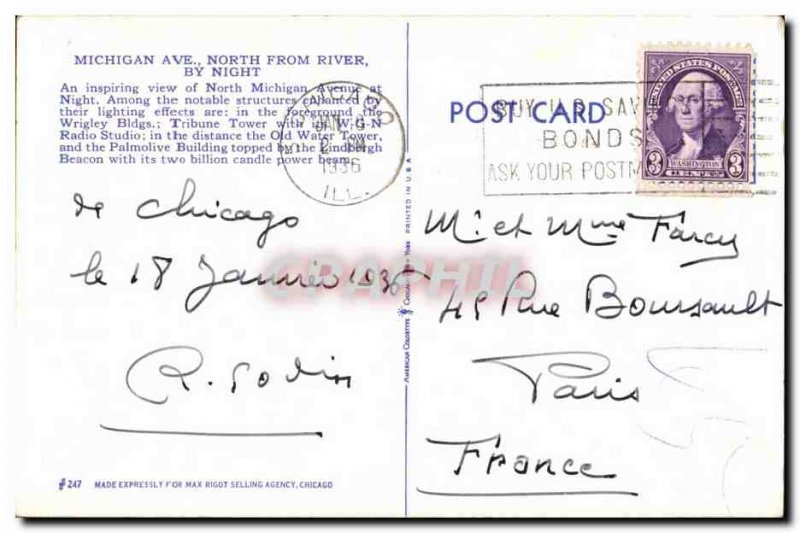 MICHIGAN AVE., NORTH FROM RIVER,
BY NIGHT
An inspiring view of North Michigan Avenue at
Night. Among the notable structures enhanced by
their lighting effects are: in the foreground the
Wrigley Bldgs.; Tribune Tower with its W-G-N
Radio Studio; in the distance the Old Water Tower,
and the Palmolive Building topped by the Lindbergh
Beacon with its two billion candle power beam.
CHICAGO
JAN
1936
ILL.
POST CARD
BUY U.S. SAV
BONDS
ASK YOUR POSTM
UNITED STATES POSTAGE
WASHINGTON
3 CENTS 3
de Chicago
le 18 Janvier 1936
R. Godin
M. et Mme Farcy
45 Rue Boursault
Paris
France
CPAPHIL
PRINTED IN U.S.A.
AMERICAN COLORTYPE
# 247 MADE EXPRESSLY FOR MAX RIGOT SELLING AGENCY, CHICAGO